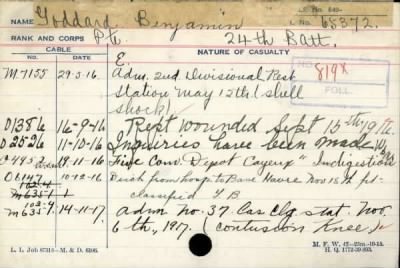 L.F. No. 649-
NAME Goddard Benjamin L. No. 65372.
RANK AND CORPS Pte 24th Batt.
CABLE
No. DATE NATURE OF CASUALTY
E.
M7155 29-5-16. Adm. 2nd Divisional Rest
Station May 12th (shell
shock)
819X
FOLL.
D1386 16-9-16 Rept wounded Sept 15th 1916.
D2526 11-10-16 Inquiries have been made
18-11-16 Five Conv. Depot Cayeux "Indigestion
10-12-16 Disch from hosp to Base Havre Nov 15th pt-
classified T B
M635-1
103-9
M635-1 14-11-17 Adm. No. 37 Cas Clg Stat. Nov.
6th, 1917. (contusion Knee)
L. L. Job 87315-M. & D. 6206.
M. F. W. 42-25m-10-15.
H. Q. 1772-39-893.